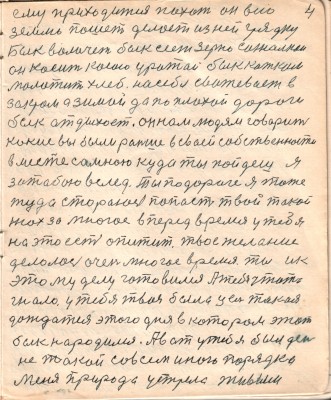 4
ему приходится пахат он всю
землю пошет делает из ней грядку
Бык волочет бык сеет зерно сажалкой
он косит косою уражай бык катком
молотит хлеб. насебя сваживает в
закром а зимой да по плохой дороги
бык отдыхает. он нам людям говорит
какие вы были раньше в своей собственности
вместе со мною куда ты пойдеш я
за табою вслед. Ты по дороге я тоже
туда стораюсь попаст твой такой
на многое вперед время у тебя
на это ест опитит, твое желание
делолос очен многое время. ты и к
этому делу готовился А тебя
гнало, у тебя твоя была цел такая
дождатся этого дня в котором этот
бык народился. А вот у тебя был ден
не такой совсем иного порядка
меня природа устрела живым